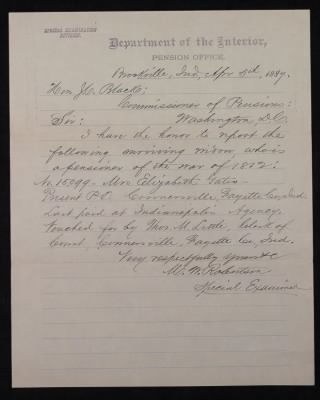 SPECIAL EXAMINATION
DIVISION.
Department of the Interior,
PENSION OFFICE,
Brookville, Ind, Apr 4th, 1887.
Hon. J.C. Black,
Commissioner of Pensions:
Sir: Washington, D.C.
I have the honor to report the
following surviving widow, who is
a pensioner of the war of 1812:
No. 15299 - Mrs. Elizabeth
Present P.O. Connersville, Fayette Co., Ind.
Last paid at Indianapolis Agency.
Vouched for by Thos. M. Little, Clerk of
Court, Connersville, Fayette Co., Ind.
Very respectfully yours &c
M. W. Robertson
Special Examiner